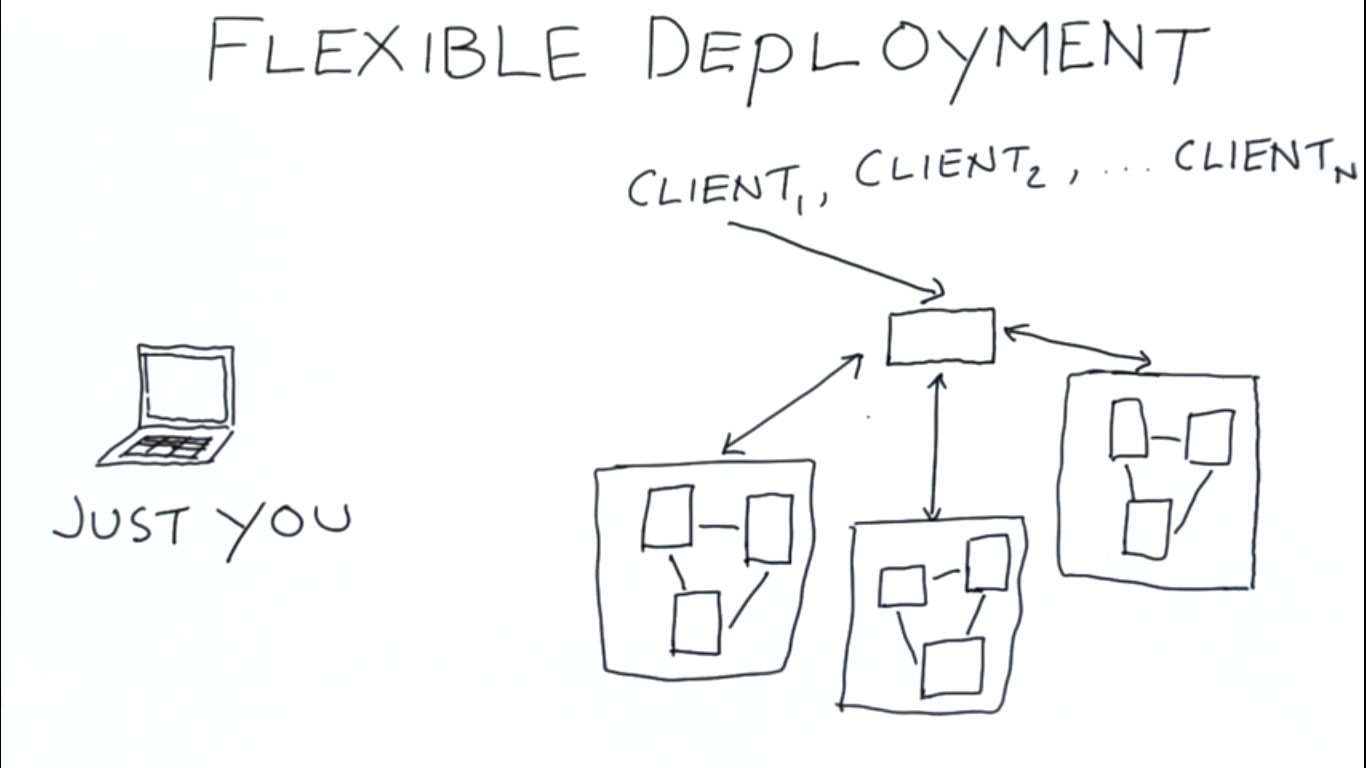 FLEXIBLE DEPLOYMENT
CLIENT₁, CLIENT₂, ... CLIENTN
JUST YOU